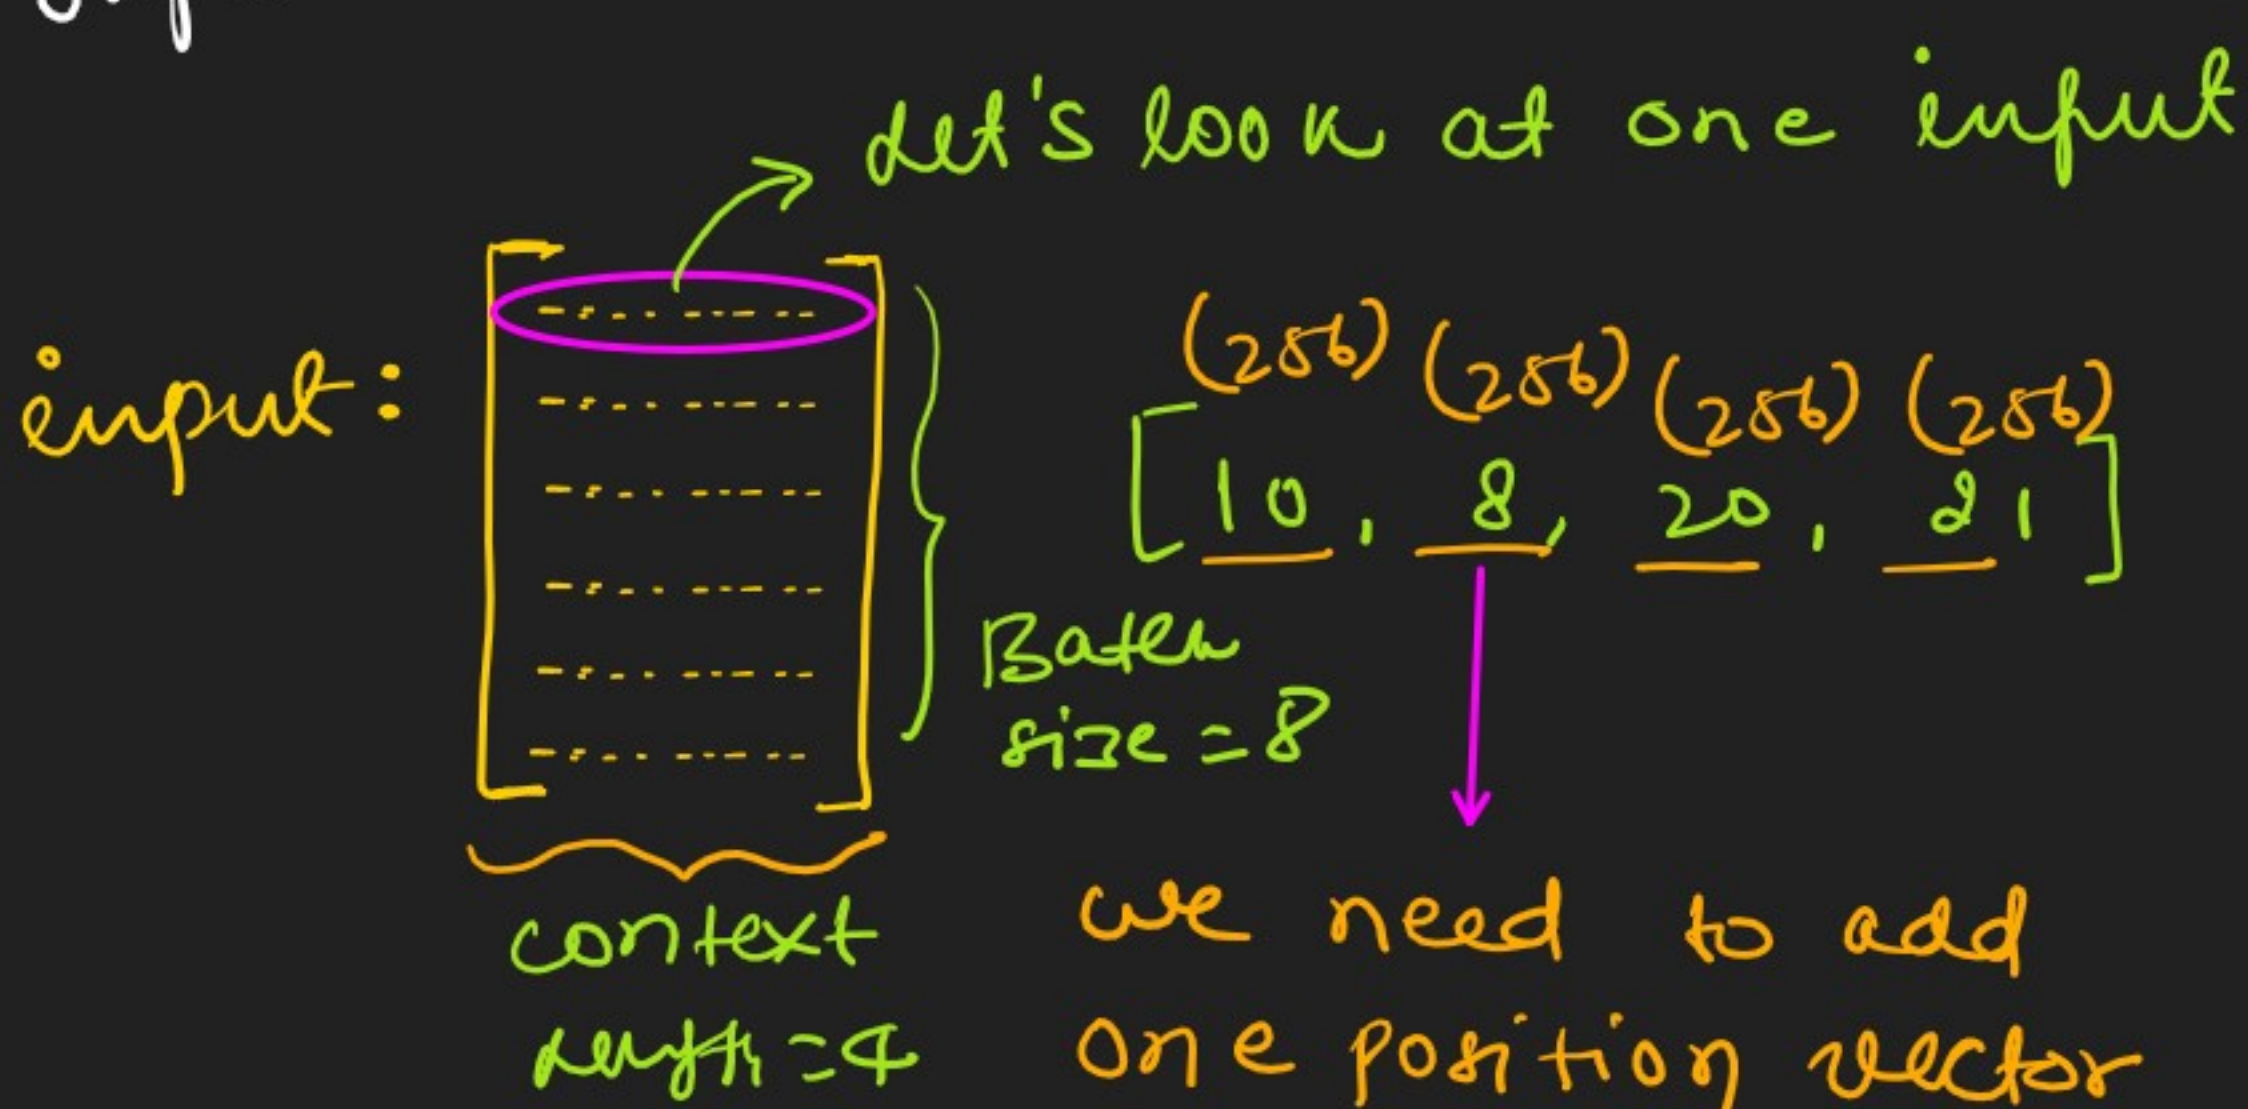 Let's look at one input
input:
(256) (256) (256) (256)
[10, 8, 20, 21]
Batch
size = 8
context
length = 4
we need to add
one position vector